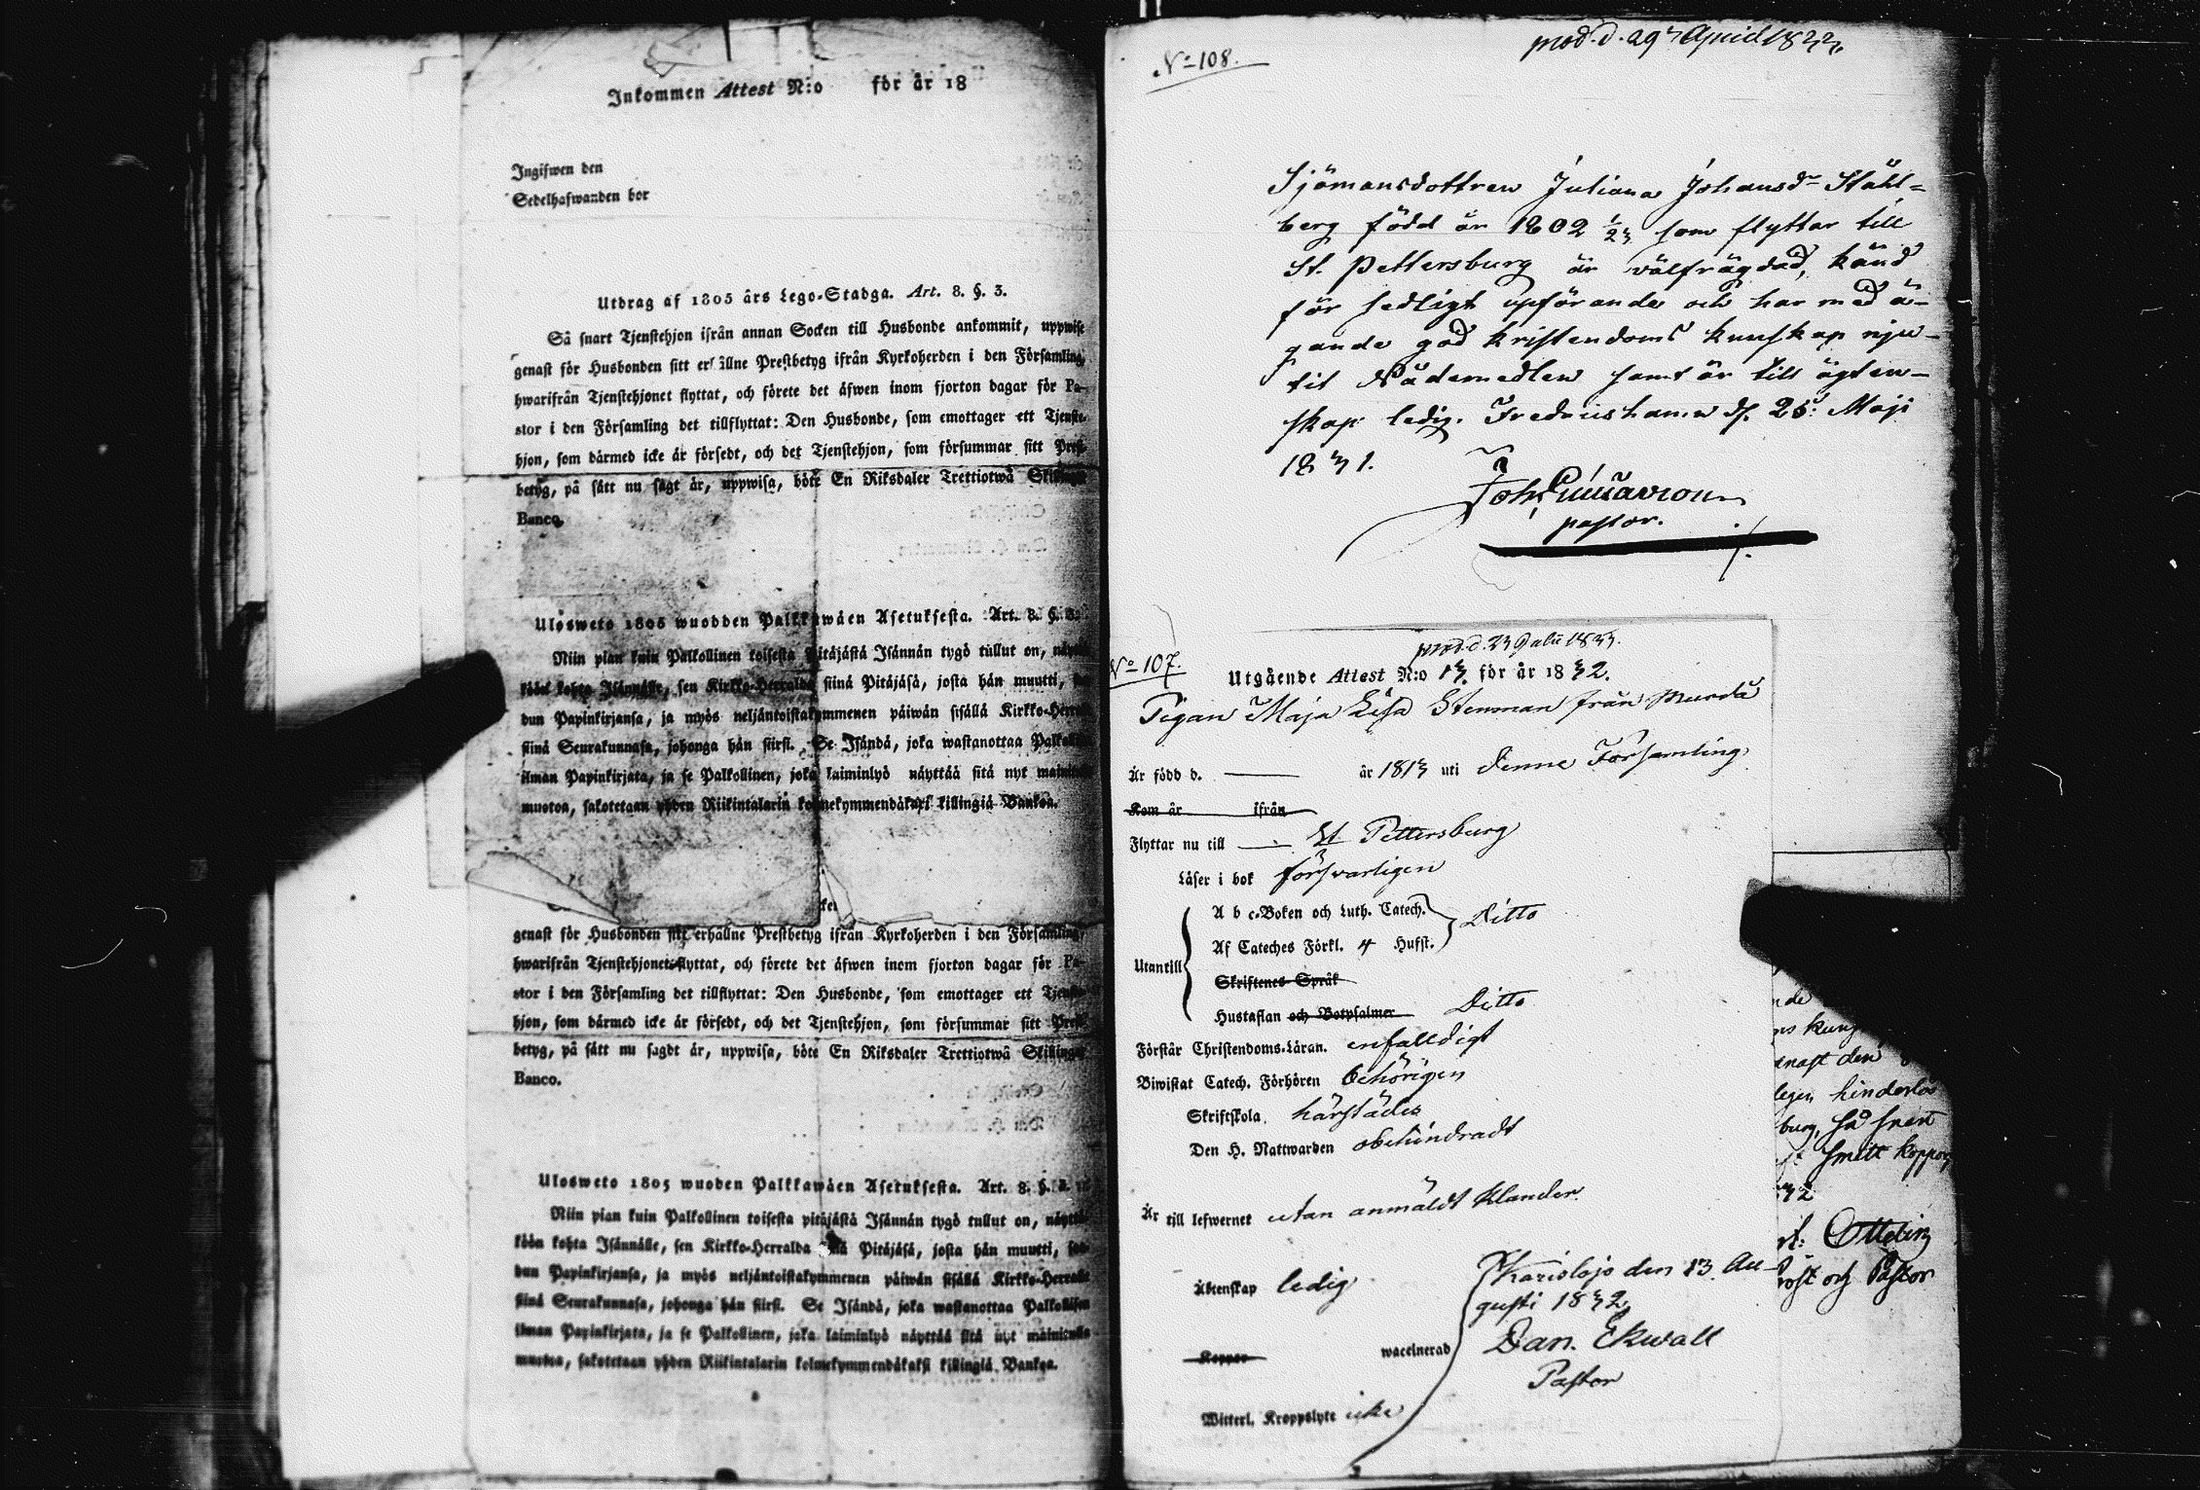 Inkommen Attest N:o för år 18
Ingifwen den
Sedelhafwanden bor
Utdrag af 1805 års Lego-Stadga. Art. 8. §. 3.
Så snart Tjenstehjon ifrån annan Socken till Husbonde ankommit, uppwise
genast för Husbonden sitt erhållne Prestbetyg ifrån Kyrkoherden i den Församling,
hwarifrån Tjenstehjonet flyttat, och förete det äfwen inom fjorton dagar för Pa-
stor i den Församling det tillflyttat: Den Husbonde, som emottager ett Tjenste-
hjon, som därmed icke är försedt, och det Tjenstehjon, som försummar sitt Prest-
betyg, på sätt nu sagt är, uppwisa, böte En Riksdaler Trettiotwå Skillingar
Banco.
Ulosweto 1805 wuodden Palkkawäen Asetuksesta. Art. 8. §. 3.
Niin pian kuin Palkollinen toisesta Pitäjästä Isännän tygö tullut on, näyttä-
köön kohta Isännälle, sen Kirkko-Herralda siinä Pitäjäsä, josta hän muutti, saa-
dun Papinkirjansa, ja myös neljäntoistakymmenen päiwän sisällä Kirkko-Herralle
siinä Seurakunnasa, johonga hän siirsi. Se Isändä, joka wastanottaa Palkollisen
ilman Papinkirjata, ja se Palkollinen, joka laiminlyö näyttää sitä nyt mainitulla
muotoa, sakotetaan yhden Riikintalarin kolmekymmendäkaksi killingiä Bankoa.
genast för Husbonden sitt erhållne Prestbetyg ifrån Kyrkoherden i den Församling,
hwarifrån Tjenstehjonet flyttat, och förete det äfwen inom fjorton dagar för Pa-
stor i den Församling det tillflyttat: Den Husbonde, som emottager ett Tjenste-
hjon, som därmed icke är försedt, och det Tjenstehjon, som försummar sitt Prest-
betyg, på sätt nu sagdt är, uppwisa, böte En Riksdaler Trettiotwå Skillingar
Banco.
Ulosweto 1805 wuoden Palkkawäen Asetuksesta. Art. 8. §. 3.
Niin pian kuin Palkollinen toisesta pitäjästä Isännän tygö tullut on, näyttä-
köön kohta Isännälle, sen Kirkko-Herralda siinä Pitäjäsä, josta hän muutti, saa-
dun Papinkirjansa, ja myös neljäntoistakymmenen päiwän sisällä Kirkko-Herralle
siinä Seurakunnasa, johonga hän siirsi. Se Isändä, joka wastanottaa Palkollisen
ilman Papinkirjata, ja se Palkollinen, joka laiminlyö näyttää sitä nyt mainitulla
muotoa, sakotetaan yhden Riikintalarin kolmekymmendäkaksi killingiä Bankoa.
prod. d. 29 April 1833.
No 108.
Sjömansdottren Juliana Johansdr Ståhl-
berg född år 1802 1/23 som flyttar till
St. Pettersburg är välfrägdad, känd
för sedligt upförande och har med ä-
gande god kristendoms kunskap nju-
tit Nådemedlen samt är till ägten-
skap ledig. Fredrikshamn d. 25 Maji
1831.
Joh. Gustavson
pastor.
prod. d. 23 1833.
No 107.
Utgående Attest N:o 13. för år 1832.
Pigan Maja Lisa Stenman från
Är född d. år 1813 uti denne Församling.
Kom år ifrån
Flyttar nu till St Pettersburg
Läser i bok försvarligen
A b c-Boken och Luth. Catech. Ditto
Af Cateches Förkl. 4 Hufst.
Utantill
Skriftenes Språk
Hustaflan och Botpsalmer Ditto
Förstår Christendoms-Läran. enfalldigt
Biwistat Catech. Förhören behörigen
Skriftskola härstädes
Den H. Nattwarden obehindradt
Är till lefwernet utan anmäldt klander.
Äktenskap ledig
Karislojo den 13 Au-
gusti 1832
Koppor waccinerad
Dan. Ekwall
Pastor
Witterl. Kroppslyte icke
den
hinderlös
burg, så snart
Smitt koppor
32
Ottelin
Prost och Pastor